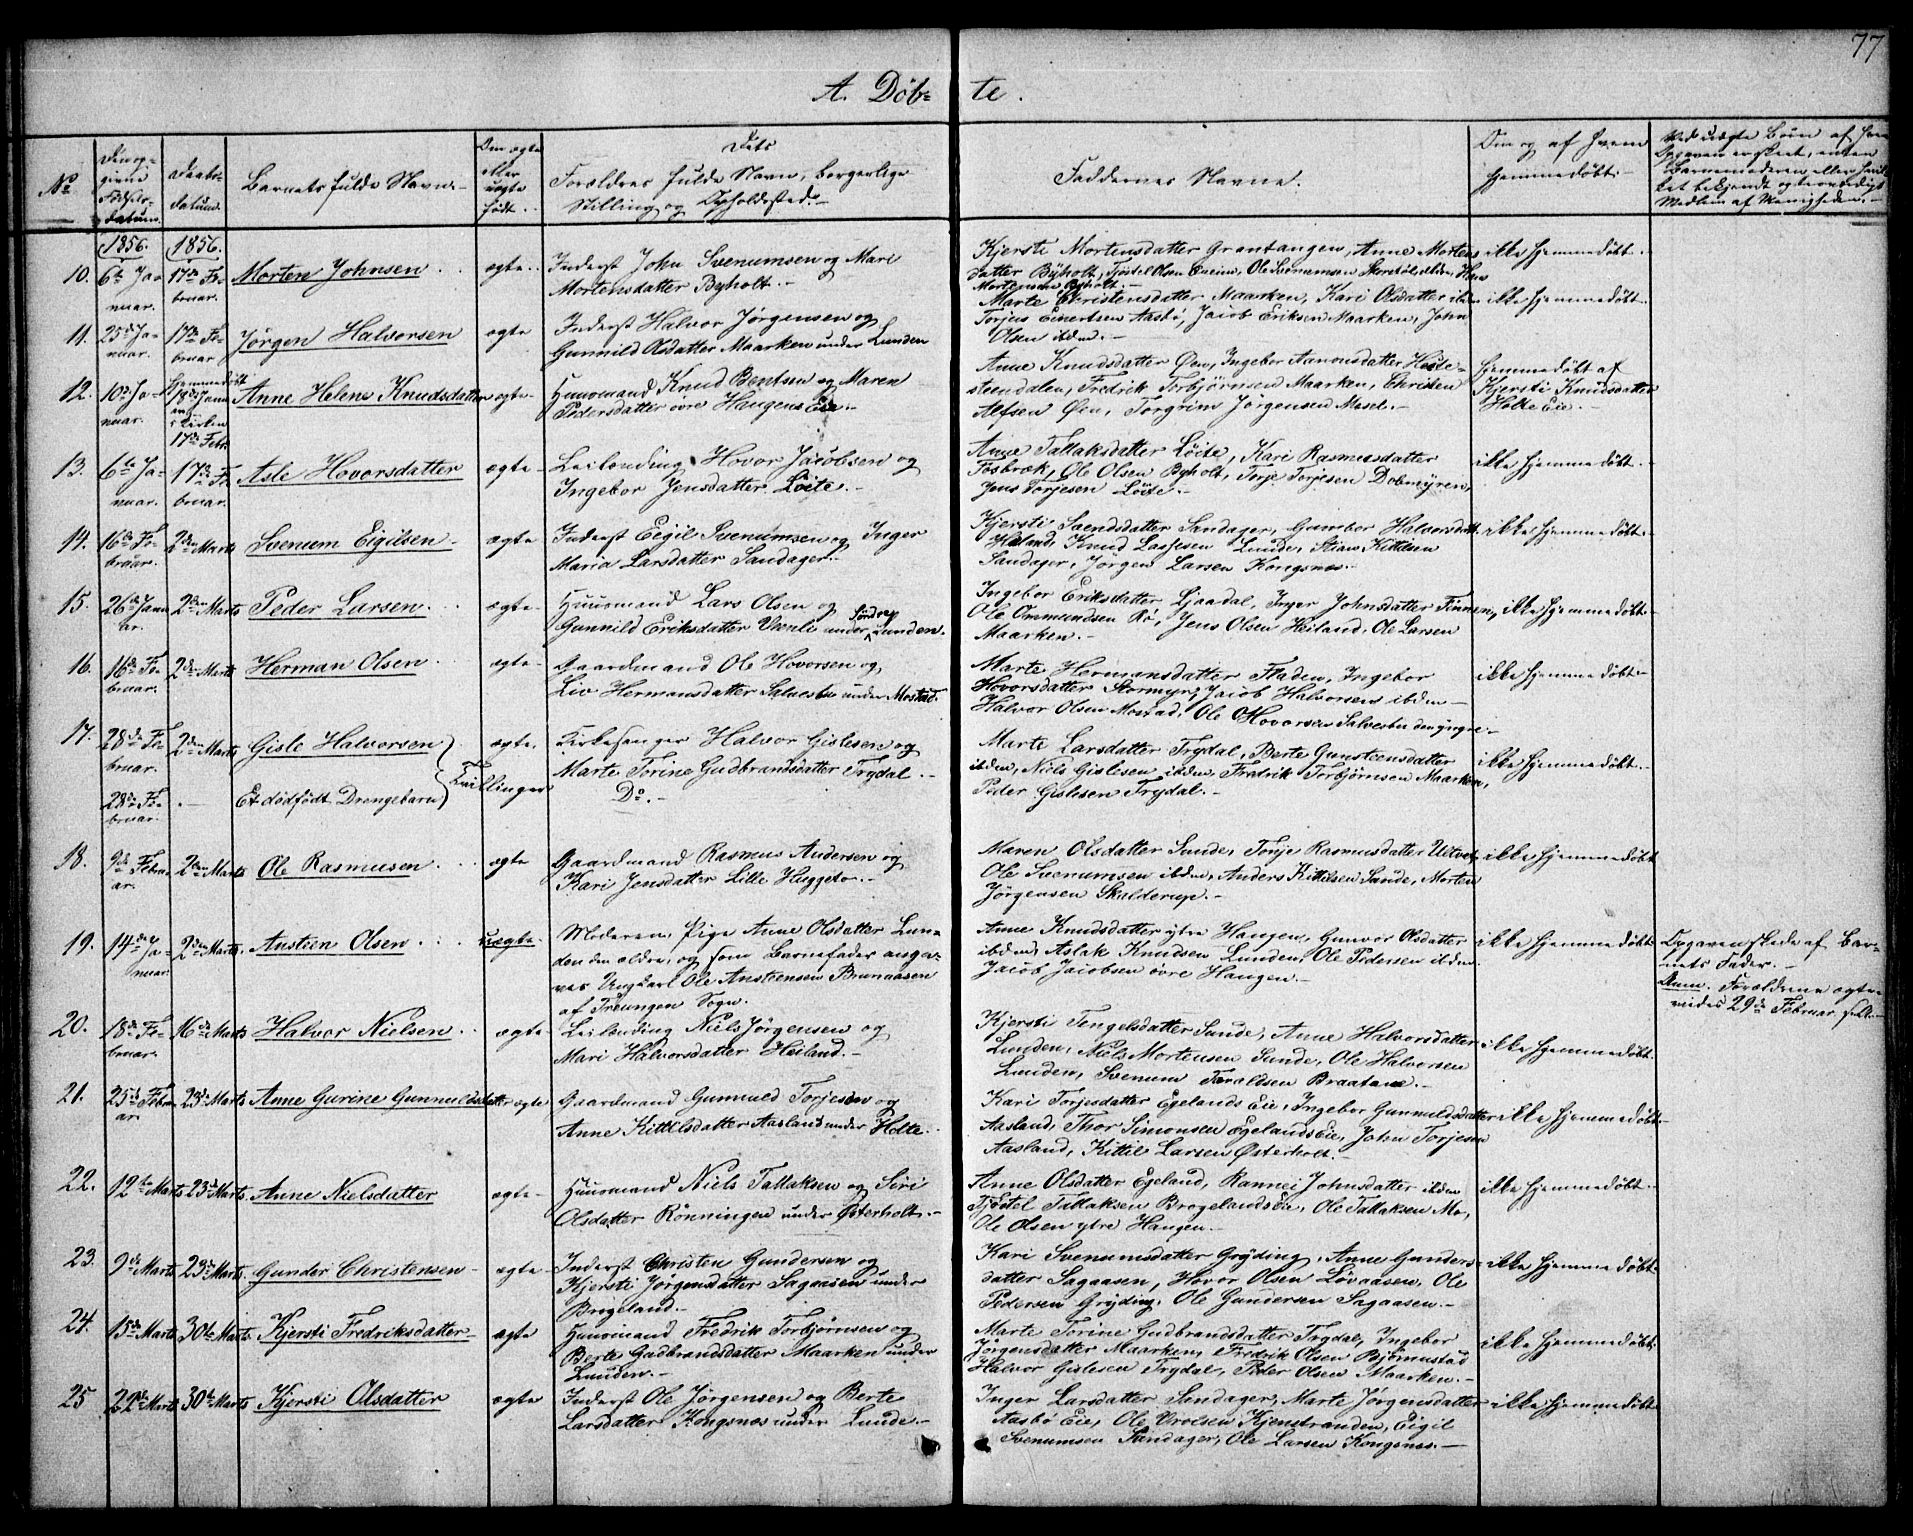 77
A. Döbte.
No
Den opgivne Fødselsdatum.
Daabsdatum.
Barnets fulde Navn.
Om ægte eller uægte født.
Dets Forældres fulde Navn, borgerlige Stilling og Opholdssted.
Faddernes Navne.
Om og af hvem hjemmedöbt.
Ved uægte Börn af hvem Opgaven er skeet, enten Barnemoderen eller
Medlem af Menigheden.
1856. 1856.
10. 6te Januar. 17de Februar. Morten Johnsen ægte
Inderst John Svenumsen og Mari
Mortensdatter Byholt.
Kjersti Mortensdatter Grantangen, Anne Mortens
datter Byholt, Tjöstel Olsen, Ole Svenumsen
Mortensen Byholt.
ikke hjemmedöbt.
11. 25de Januar. 17de Februar Jörgen Halvorsen ægte
Inderst Halvor Jörgensen og
Gunnild Olsdatter Maarken under Lunden
Marte Christensdatter Maarken, Kari Olsdatter ibdm
Torjus Einertsen Aasbö, Jacob Eriksen Maarken, John
Olsen ibdm.
ikke hjemmedöbt.
12. 10de Januar. Hjemmedöbt Januar i Kirken 17de Febr. Anne Helene Knudsdatter ægte
Huusmand Knud Bentsen og Maren
Pedersdatter övre Haugens Eie.
Anne Knudsdatter Öen, Ingebor Aanonsdatter
Fredrik Torbjörnsen Maarken, Christen
Alfsen Öen, Torgrim Jörgensen Mosel.
hjemmedöbt af
Kjersti Knudsdatter
Holte Eie.
13. 6te Januar. 17de Februar. Asle Hovorsdatter ægte
Leilending Hovor Jacobsen og
Ingebor Jensdatter Löite.
Anne Tallaksdatter Löite, Kari Rasmusdatter
Fosbræk, Ole Olsen Byholt, Torje Torjesen Dobmyren,
Jens Torjesen Löite.
ikke hjemmedöbt.
14. 16de Februar. 2den Marts Svenum Eigilsen ægte
Inderst Eigil Svenumsen og Inger
Maria Larsdatter Sandager.
Kjersti Svendsdatter Sandager, Gumbor Halvorsdatt.
Heiland, Knud Lassesen Lunde, Stian Kittilsen
Sandager, Jörgen Larsen Kongsnæs.
ikke hjemmedöbt.
15. 26de Januar. 2den Marts Peder Larsen. ægte
Huusmand Lars Olsen og
Gunnild Eriksdatter Vænli under Lunden.
Ingebor Eriksdatter Ljaadal, Inger Johnsdatter Finnen,
Ole Ommundsen Rö, Jens Olsen Heiland, Ole Larsen
Maarken.
ikke hjemmedöbt.
16. 16de Februar. 2den Marts Herman Olsen ægte
Gaardmand Ole Hovorsen og
Liv Hermansdatter Salvesbu under Mostad.
Marte Hermansdatter Staden, Ingebor
Hovorsdatter Stormyr, Jacob Halvorsen ibdm
Halvor Olsen Mostad, Ole Hovorsen Salvesbu den yngre.
ikke hjemmedöbt.
17. 28de Februar. 2den Marts Gisle Halvorsen ægte
Kirkesanger Halvor Gislesen og
Marte Torine Gudbrandsdatter Trydal.
Marte Larsdatter Trydal, Berte Gunsteensdatter
ibdm, Niels Gislesen ibdm, Fredrik Torbjörnsen Maarken,
Peder Gislesen Trydal.
ikke hjemmedöbt.
28de Februar. Et dødfödt Drengebarn Tvillinger Do.
18. 9de Februar. 2den Marts Ole Rasmusen ægte
Gaardmand Rasmus Andersen og
Kari Jensdatter Lille Huggeto.
Maren Olsdatter Sunde, Tonje Rasmusdatter Udtvet,
Ole Svenumsen ibdm, Anders Kittilsen Sunde, Morten
Jörgensen Skulderup.
ikke hjemmedöbt
19. 14de Januar. 2den Marts. Anstien Olsen uægte
Moderen: Pige Anne Olsdatter Lunden
den ældre, og som Barnefader angaves
Ungkarl Ole Anstiensen Brunaasen
af Treungen Sogn.
Anne Knudsdatter ytre Haugen, Gunvor Olsdatter
ibdm, Aslak Knudsen Lunden, Ole Pedersen ibdm
Jacob Jacobsen övre Haugen.
ikke hjemmedöbt
Opgaven skede af Barnets
Fader.
Anm. Forældrene ægteviedes
29de Februar
20. 18de Februar. 16de Marts Halvor Nielsen ægte
Leilending Niels Jörgensen og
Mari Halvorsdatter Heiland.
Kjersti Tengelsdatter Sunde, Anne Halvorsdatter
Lunden, Niels Mortensen Sunde, Ole Halvorsen
Lunden, Svenum Taraldsen Braatane.
ikke hjemmedöbt.
21. 25de Februar 23de Marts Anne Gurine Gunnuldsdatter ægte
Gaardmand Gunnuld Torjesen og
Anne Kittilsdatter Aasland under Holte.
Kari Torjesdatter Egelands Eie, Ingebor Gunnuldsdatter
Aasland, Thor Simonsen Egelands Eie, John Torjesen
Aasland, Kittil Larsen Østerholt.
ikke hjemmedöbt.
22. 12te Marts 23de Marts. Anne Nielsdatter ægte
Huusmand Niels Tallaksen og Siri
Olsdatter Rönningen under Østerholt.
Anne Olsdatter Egeland, Rannei Johnsdatter ibdm
Tjöstel Tallaksen Brogelands Eie, Ole Tallaksen Mo,
Ole Olsen ytre Haugen.
ikke hjemmedöbt.
23. 9de Marts 23de Marts. Gunder Christensen ægte
Inderst Christen Gundersen og
Kjersti Jörgensdatter Sagaasen under
Brogeland.
Kari Svenumsdatter Gryding, Anne Gundersdatter
Sagaasen, Hovor Olsen Lövaasen, Ole
Pedersen Gryding, Ole Gundersen Sagaasen.
ikke hjemmedöbt.
24. 15de Marts 30te Marts. Kjersti Fredriksdatter ægte
Huusmand Fredrik Torbjörnsen og
Berte Gudbrandsdatter Maarken under
Lunden.
Marte Torine Gudbrandsdatter Trydal, Ingebor
Jörgensdatter Maarken, Fredrik Olsen Björnustad
Halvor Gislesen Trydal, Peder Olsen Maarken.
ikke hjemmedöbt.
25 22de Marts 30te Marts Kjersti Olsdatter ægte
Inderst Ole Jörgensen og Berte
Larsdatter Kongsnæs under Lunde.
Inger Larsdatter Sandager, Marte Jörgensdatter
Aasbö Eie, Ole Vrolsen Kjenstranden, Eigil
Svenumsen Sandager, Ole Larsen Kongsnæs.
ikke hjemmedöbt